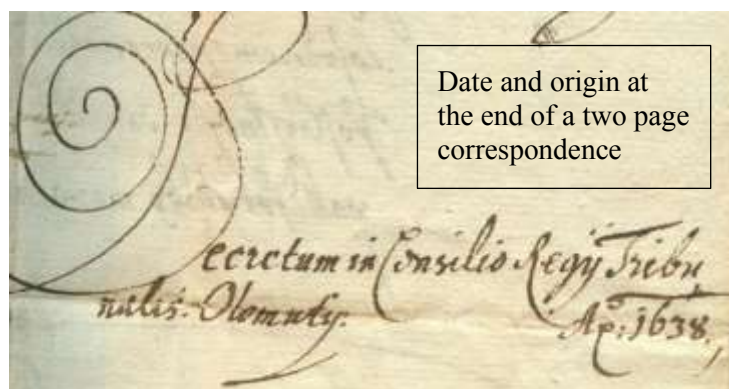 Date and origin at
the end of a two page
correspondence
Decretum in Consilio Regij Tribu
nalis. Olomutij.
Ao: 1638.